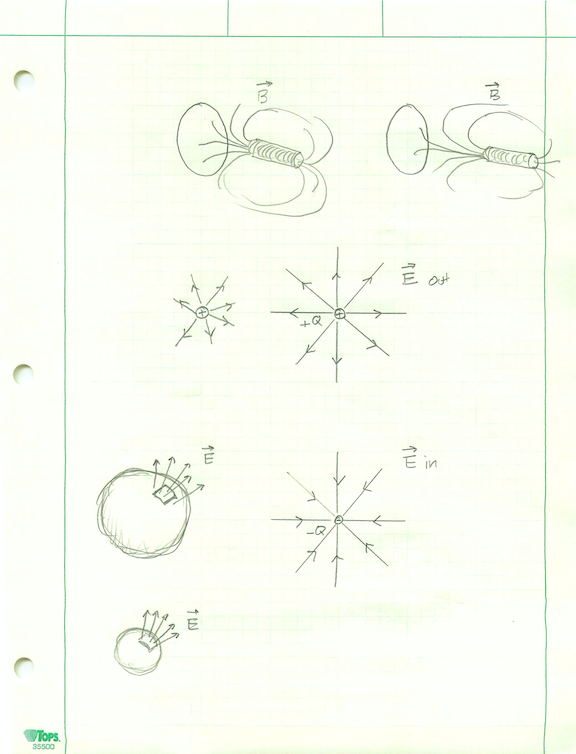 B B
E out
+Q
E
E in
-Q
E
TOPS
35500